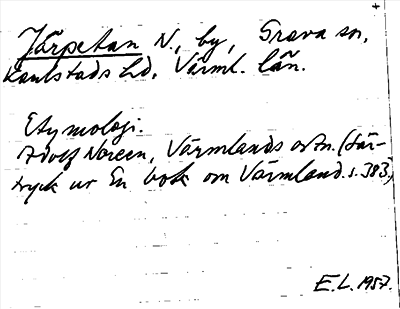 Järpetan N., by, Grava sn,
Karlstads hd, Värml. län.
Etymologi.
Adolf Noreen, Värmlands ortn. (Sär-
tryck ur En bok om Värmland. s. 383)
E.L. 1957.